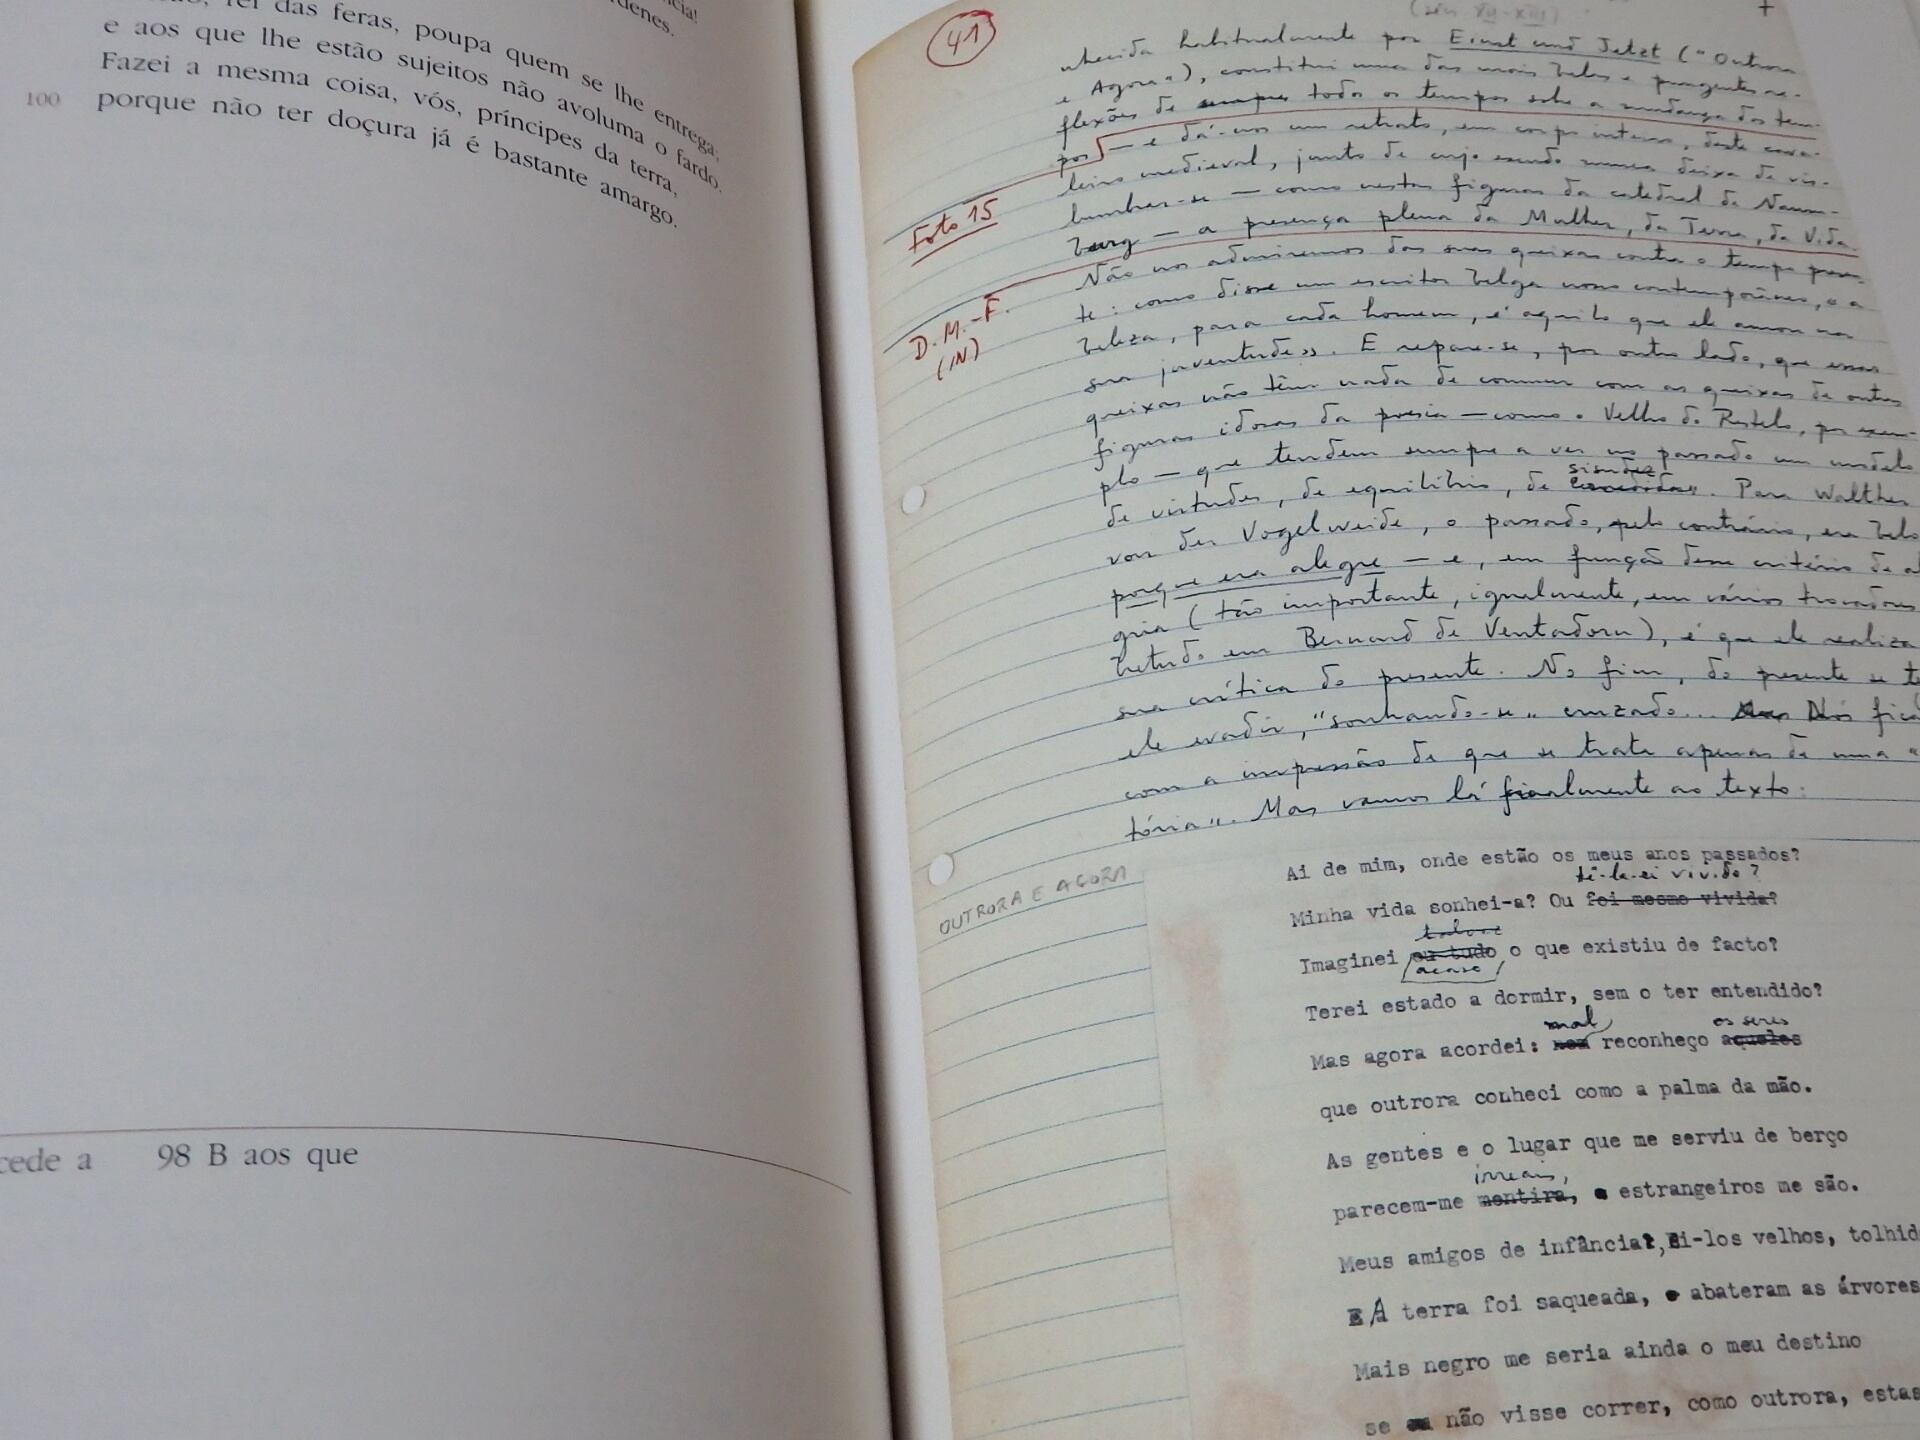 das feras, poupa quem se lhe entrega,
e aos que lhe estão sujeitos não avoluma o fardo.
Fazei a mesma coisa, vós, príncipes da terra,
100 porque não ter doçura já é bastante amargo.
cede a 98 B aos que
41
nhecida habitualmente por Einst und Jetzt ("Outrora
e Agora"), constitui uma das mais belas e pungentes re-
flexões de sempre todos os tempos sobre a mudança dos tem-
pos — e dá-nos um retrato, em corpo inteiro, deste cava-
leiro medieval, junto de cujo escudo nunca deixa de vis-
lumbrar-se — como nestas figuras da catedral de Naum-
burg — a presença plena da Mulher, da Terra, da Vida.
Foto 15
Não nos admiremos das suas queixas contra o tempo presen-
te: como disse um escritor belga nosso contemporâneo, « a
D. M.-F.
(IN)
beleza, para cada homem, é aquilo que ele amou na
sua juventude». E repare-se, por outro lado, que essas
queixas não têm nada de comum com as queixas de outras
figuras idosas da poesia — como o Velho do Restelo, por exem-
plo — que tendem sempre a ver no passado um modelo
sisudez
de virtudes, de equilíbrio, de Para Walther
von der Vogelweide, o passado, pelo contrário, era belo
porque era alegre — e, em função desse critério de al
gria (tão importante, igualmente, em vários trovadores
bretudo em Bernard de Ventadorn), é que ele realiza
sua crítica do presente. No fim, do presente se t
ele evadir, "sonhando-se" cruzado... Nós fica
com a impressão de que se trata apenas de uma "
tória". Mas vamos lá finalmente ao texto:
OUTRORA E AGORA
Ai de mim, onde estão os meus anos passados?
tê-la-ei vivido?
Minha vida sonhei-a? Ou foi mesmo vivida?
talvez
Imaginei eu tudo o que existiu de facto?
acaso
Terei estado a dormir, sem o ter entendido?
mal os seres
Mas agora acordei: nem reconheço aqueles
que outrora conheci como a palma da mão.
As gentes e o lugar que me serviu de berço
irreais,
parecem-me mentira, e estrangeiros me são.
Meus amigos de infância, Ei-los velhos, tolhid
E A terra foi saqueada, e abateram as árvores
Mais negro me seria ainda o meu destino
se eu não visse correr, como outrora, estas